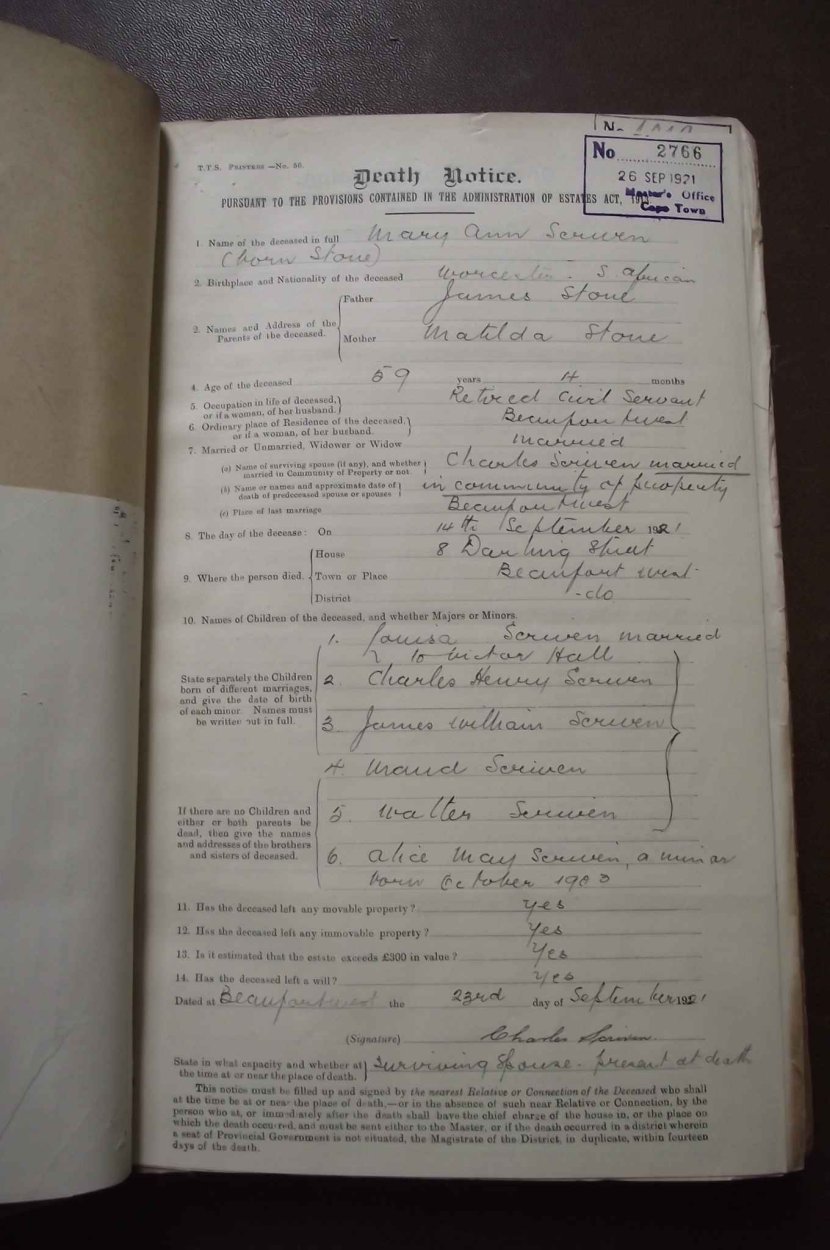 No 2766
26 SEP 1921
Master's Office
Cape Town
T.T.S. PRINTERS —No. 50.
Death Notice.
PURSUANT TO THE PROVISIONS CONTAINED IN THE ADMINISTRATION OF ESTATES ACT, 1913.
1. Name of the deceased in full Mary Ann Scriven
(born Stone)
2. Birthplace and Nationality of the deceased Worcester. S. African
3. Names and Address of the Parents of the deceased. Father James Stone
Mother Matilda Stone
4. Age of the deceased 59 years 4 months
5. Occupation in life of deceased, or if a woman, of her husband. Retired Civil Servant
6. Ordinary place of Residence of the deceased, or if a woman, of her husband. Beaufort West
7. Married or Unmarried, Widower or Widow married
(a) Name of surviving spouse (if any), and whether married in Community of Property or not Charles Scriven married
(b) Name or names and approximate date of death of predeceased spouse or spouses in community of property
(c) Place of last marriage Beaufort West
8. The day of the decease: On 14th September 1921
9. Where the person died. House 8 Darling Street
Town or Place Beaufort West
District -do
10. Names of Children of the deceased, and whether Majors or Minors.
1. Louisa Scriven married
to Victor Hall
State separately the Children
born of different marriages,
and give the date of birth
of each minor. Names must
be written out in full.
2. Charles Henry Scriven
3. James William Scriven
4. Maud Scriven
If there are no Children and
either or both parents be
dead, then give the names
and addresses of the brothers
and sisters of deceased.
5. Walter Scriven
6. Alice May Scriven, a minor
born October 1903
11. Has the deceased left any movable property? yes
12. Has the deceased left any immovable property? yes
13. Is it estimated that the estate exceeds £300 in value? yes
14. Has the deceased left a will? yes
Dated at Beaufort West the 23rd day of September 1921
(Signature) Charles Scriven.
State in what capacity and whether at the time at or near the place of death. Surviving Spouse. present at death
This notice must be filled up and signed by the nearest Relative or Connection of the Deceased who shall
at the time be at or near the place of death,—or in the absence of such near Relative or Connection, by the
person who at, or immediately after the death shall have the chief charge of the house in, or the place on
which the death occurred, and must be sent either to the Master, or if the death occurred in a district wherein
a seat of Provincial Government is not situated, the Magistrate of the District, in duplicate, within fourteen
days of the death.